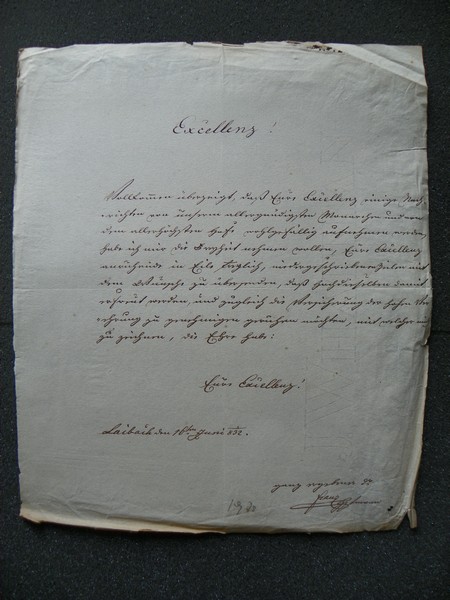 Excellenz!
Vollkommen überzeigt, daß Eure Excellenz einige Nach-
richten von unserm allergnädigsten Monarchen und von
dem allerhöchsten Hofe wohlgefällig aufnehmen werden,
habe ich mir die Freyheit nehmen wollen, Eure Excellenz
in Eile
dem Wunsche zu übersenden, daß Hochdieselben damit
erfreut werden, und zugleich die Versicherung der hohen Ver-
ehrung zu genehmigen geruhen möchten, mit welcher ich
zu zeichnen, die Ehre habe:
Eure Excellenz!
Laibach den 18ten Juni 832.
ganz ergebener
Franz